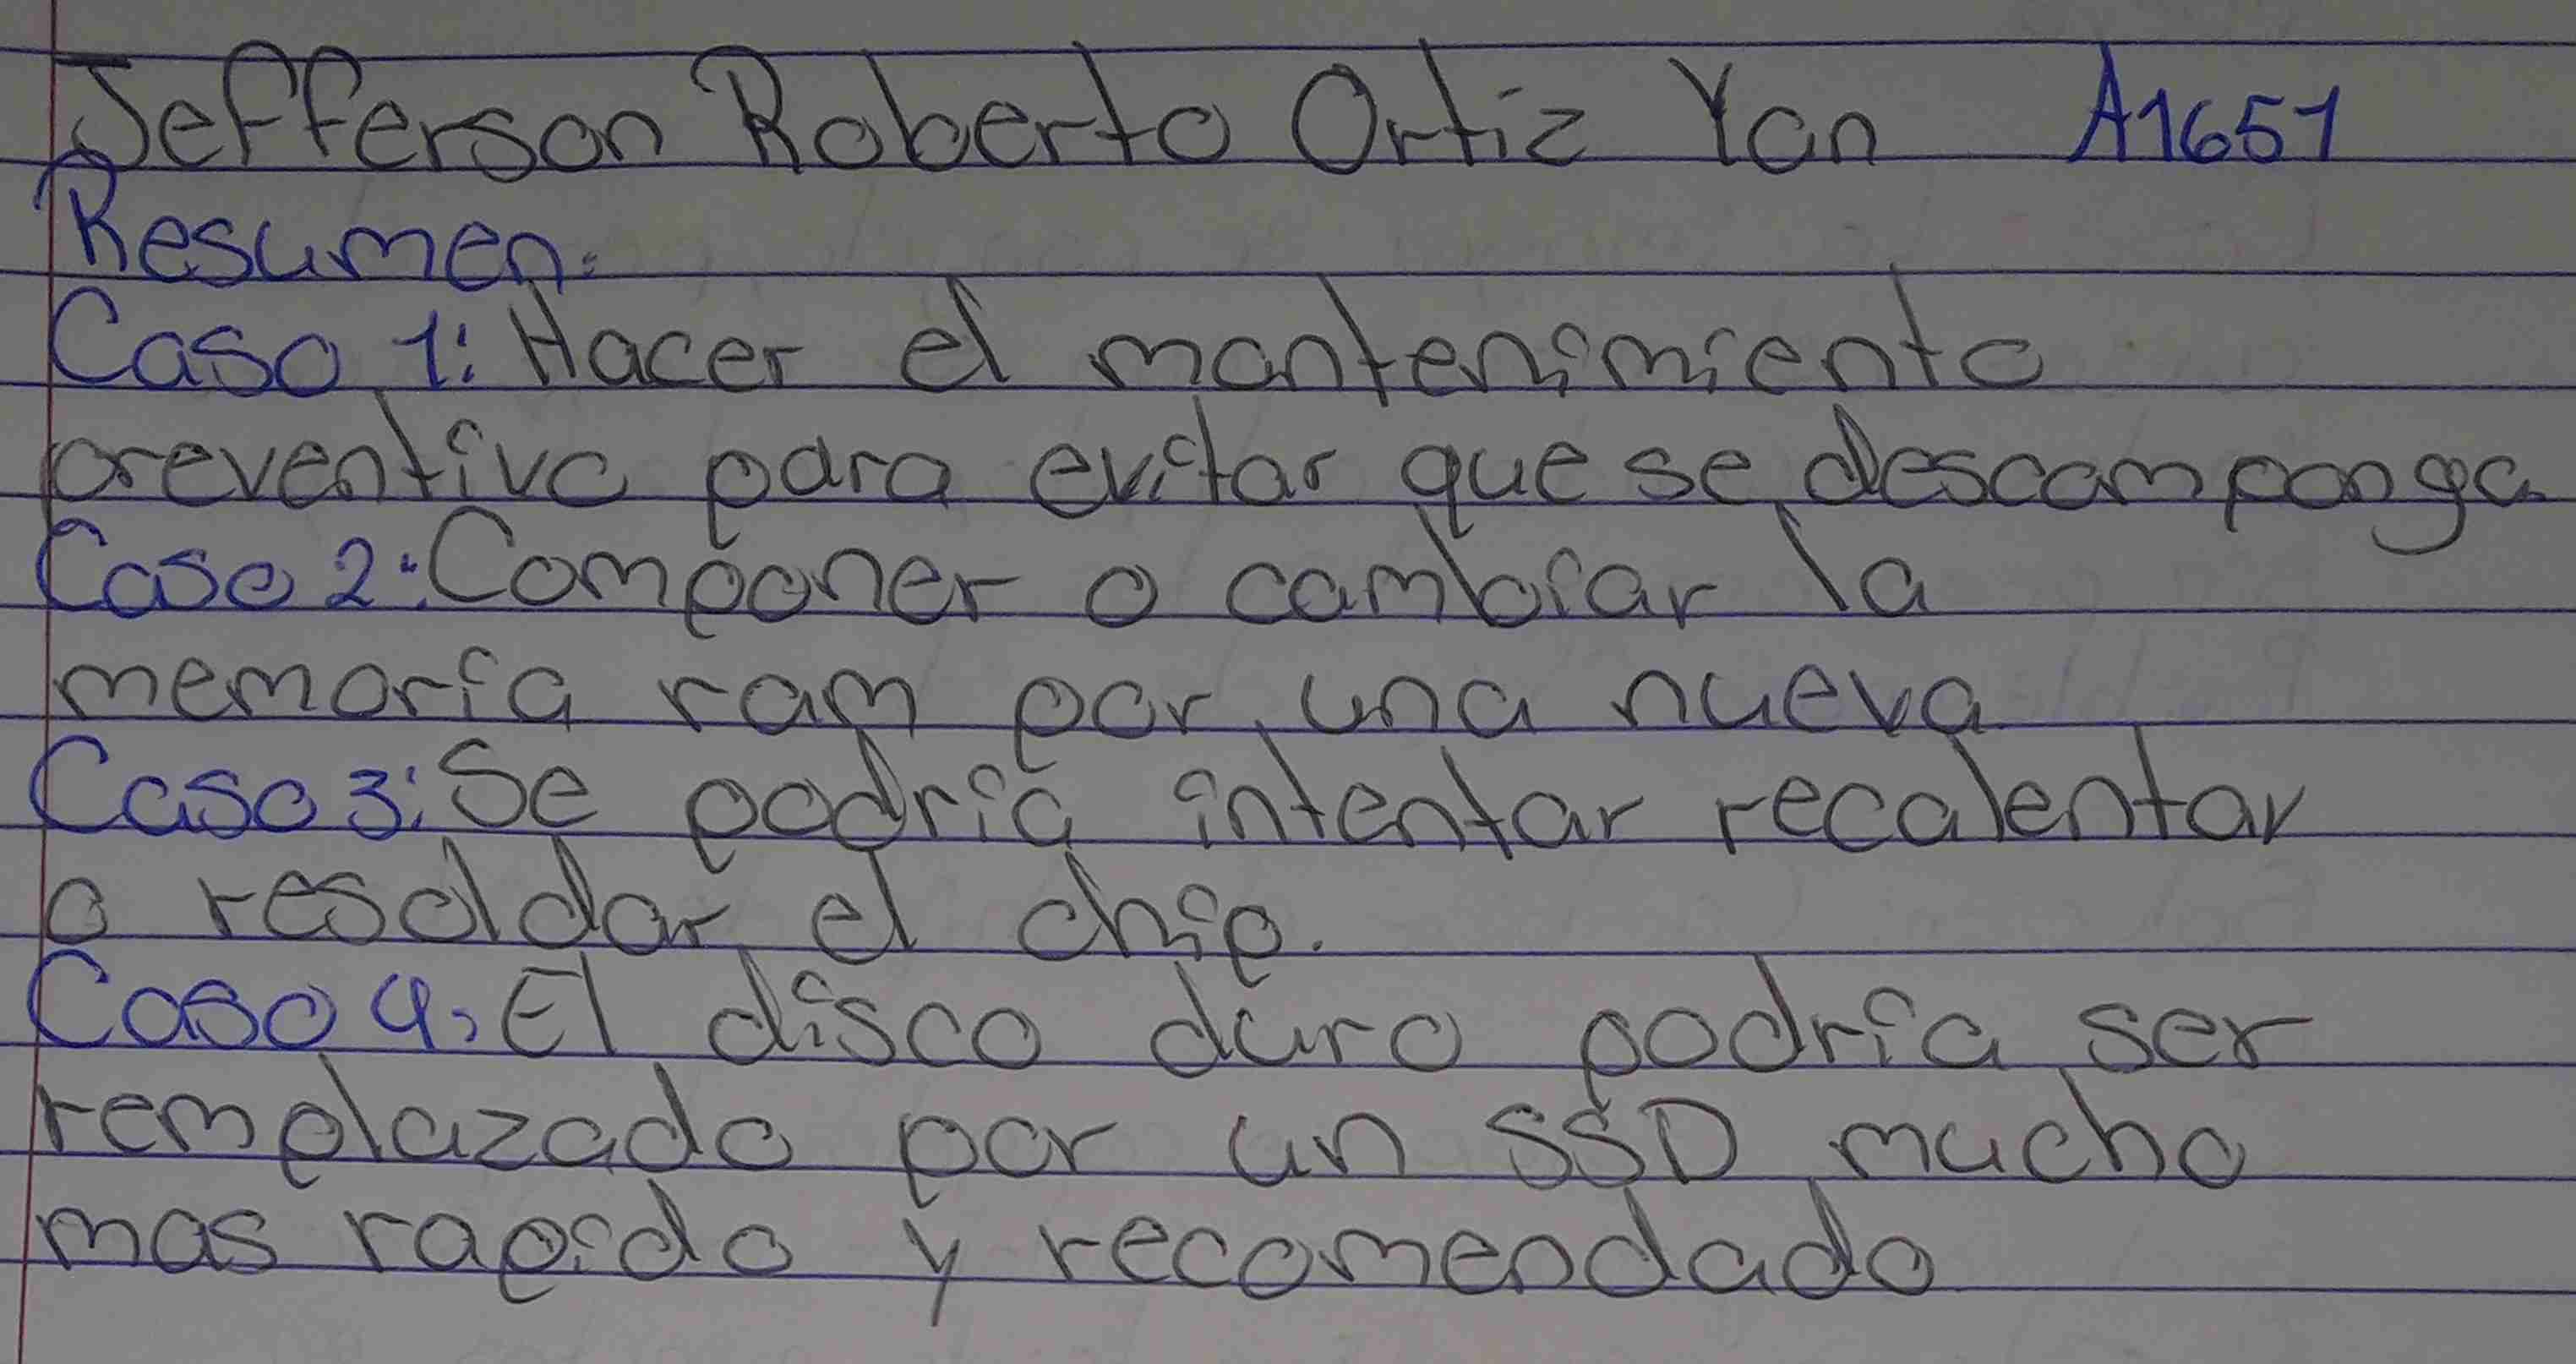 Jefferson Roberto Ortiz Yan A1651
Resumen:
Caso 1: Hacer el mantenimiento
preventivo para evitar que se descomponga
Caso 2: Componer o cambiar la
memoria ram por una nueva
Caso 3: Se podría intentar recalentar
o resoldar el chip.
Caso 4, El disco duro podría ser
remplazado por un SSD mucho
mas rapido y recomendado